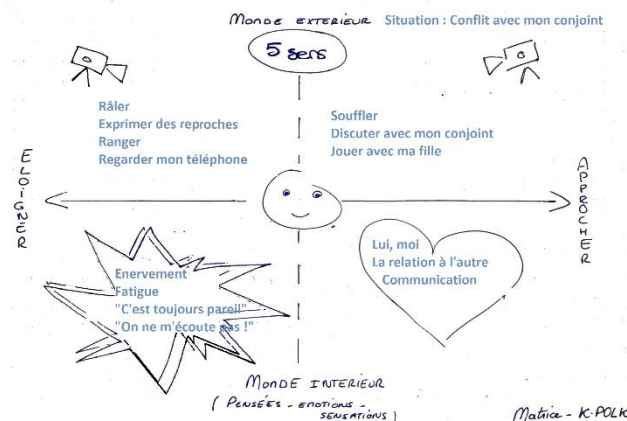 MONDE EXTERIEUR
Situation : Conflit avec mon conjoint
5 sens
Râler
Exprimer des reproches
Ranger
Regarder mon téléphone
Souffler
Discuter avec mon conjoint
Jouer avec ma fille
ELOIGNER
APPROCHER
Enervement
Fatigue
"C'est toujours pareil"
"On ne m'écoute pas !"
Lui, moi
La relation à l'autre
Communication
MONDE INTERIEUR
( PENSÉES - EMOTIONS -
SENSATIONS )
Matrice - K. POLK